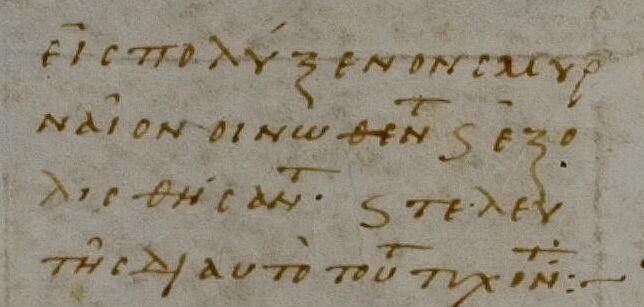 εἰς πολύξενον σμυρ
ναῖον οἰνωθέντ ϗ ἐξο
λισθήσαντ· ϗ τελευ
τῆς δι αυτὸ τοῦτ τυχόντ:~